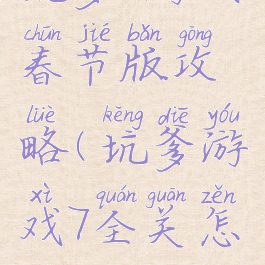 chūn jié bǎn gōng
春节版攻
lüè kēng diē yóu
略(坑爹游
xì quán guān zěn
戏7全关怎